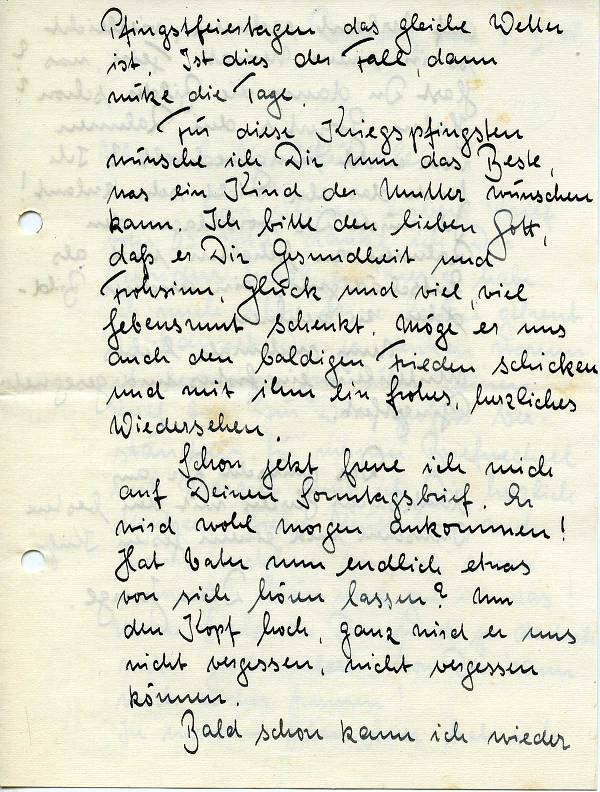 Pfingstfeiertagen das gleiche Wetter
ist. Ist dies der Fall, dann
nütze die Tage.
Für diese Kriegspfingsten
wünsche ich Dir nun das Beste,
was ein Kind der Mutter wünschen
kann. Ich bitte den lieben Gott,
daß er Dir Gesundheit und
Frohsinn, Glück und viel, viel
Lebensmut schenkt. Möge er uns
auch den baldigen Frieden schicken
und mit ihm ein frohes, herzliches
Wiedersehen.
Schon jetzt freue ich mich
auf Deinen Sonntagsbrief. Er
wird wohl morgen ankommen!
Hat Vater nun endlich etwas
von sich hören lassen? Nun
den Kopf hoch, ganz wird er uns
nicht vergessen, nicht vergessen
können.
Bald schon kann ich wieder